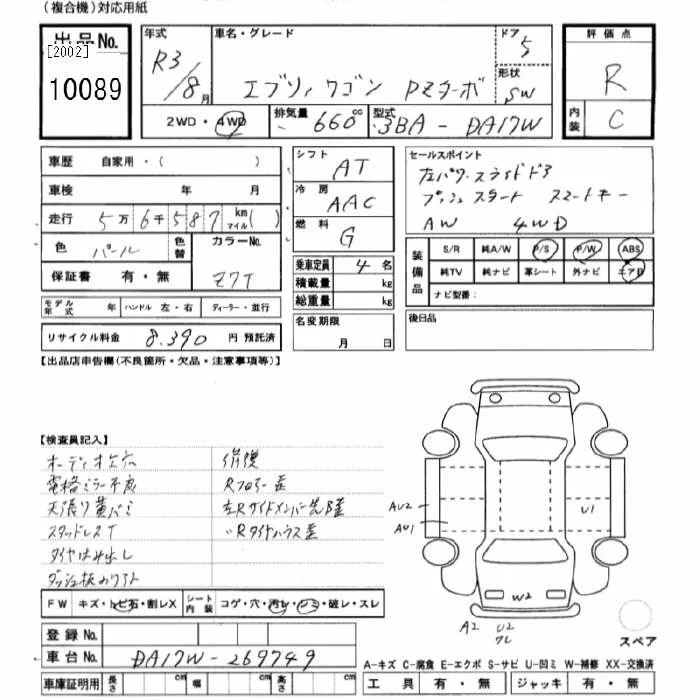 (複合機)対応用紙
出品No.
[2002]
10089
年式 R3/8月
車名・グレード エブリィワゴン PZターボ
ドア 5
形状 SW
2WD・4WD
排気量 660cc
型式 3BA-DA17W
評価点 R
内装 C
車歴 自家用・( )
車検 年 月
走行 5万6千587 km マイル( )
色 パール
色替
カラーNo. Z7T
保証書 有・無
モデル年式 年 ハンドル 左・右 ディーラー・並行
リサイクル料金 8,390 円 預託済
シフト AT
冷房 AAC
燃料 G
乗車定員 4名
積載量 kg
総重量 kg
名変期限 月 日
セールスポイント
左パワースライドドア
プッシュスタート スマートキー
AW 4WD
装備品
S/R 純A/W P/S P/W ABS
純TV 純ナビ 革シート 外ナビ エアB
ナビ型番:
後日品
【出品店申告欄(不良箇所・欠品・注意事項等)】
【検査員記入】
オーディオ欠
電格ミラー不良
天張り黄バミ
スタッドレスT
タイヤはみ出し
修復
Rフロアー歪
左Rサイドメンバー先歪
〃Rタイヤハウス歪
AU2
AU1
U1
W2
A2 U2
FW キズ・トビ石・割レX シート内装 コゲ・穴・汚レ・シミ・破レ・スレ
スペア
登録No.
車台No. DA17W-269749
A-キズ C-腐食 E-エクボ S-サビ U-凹ミ W-補修 XX-交換済
車庫証明用 長さ cm 幅 cm 高さ cm
工具 有・無 ジャッキ 有・無